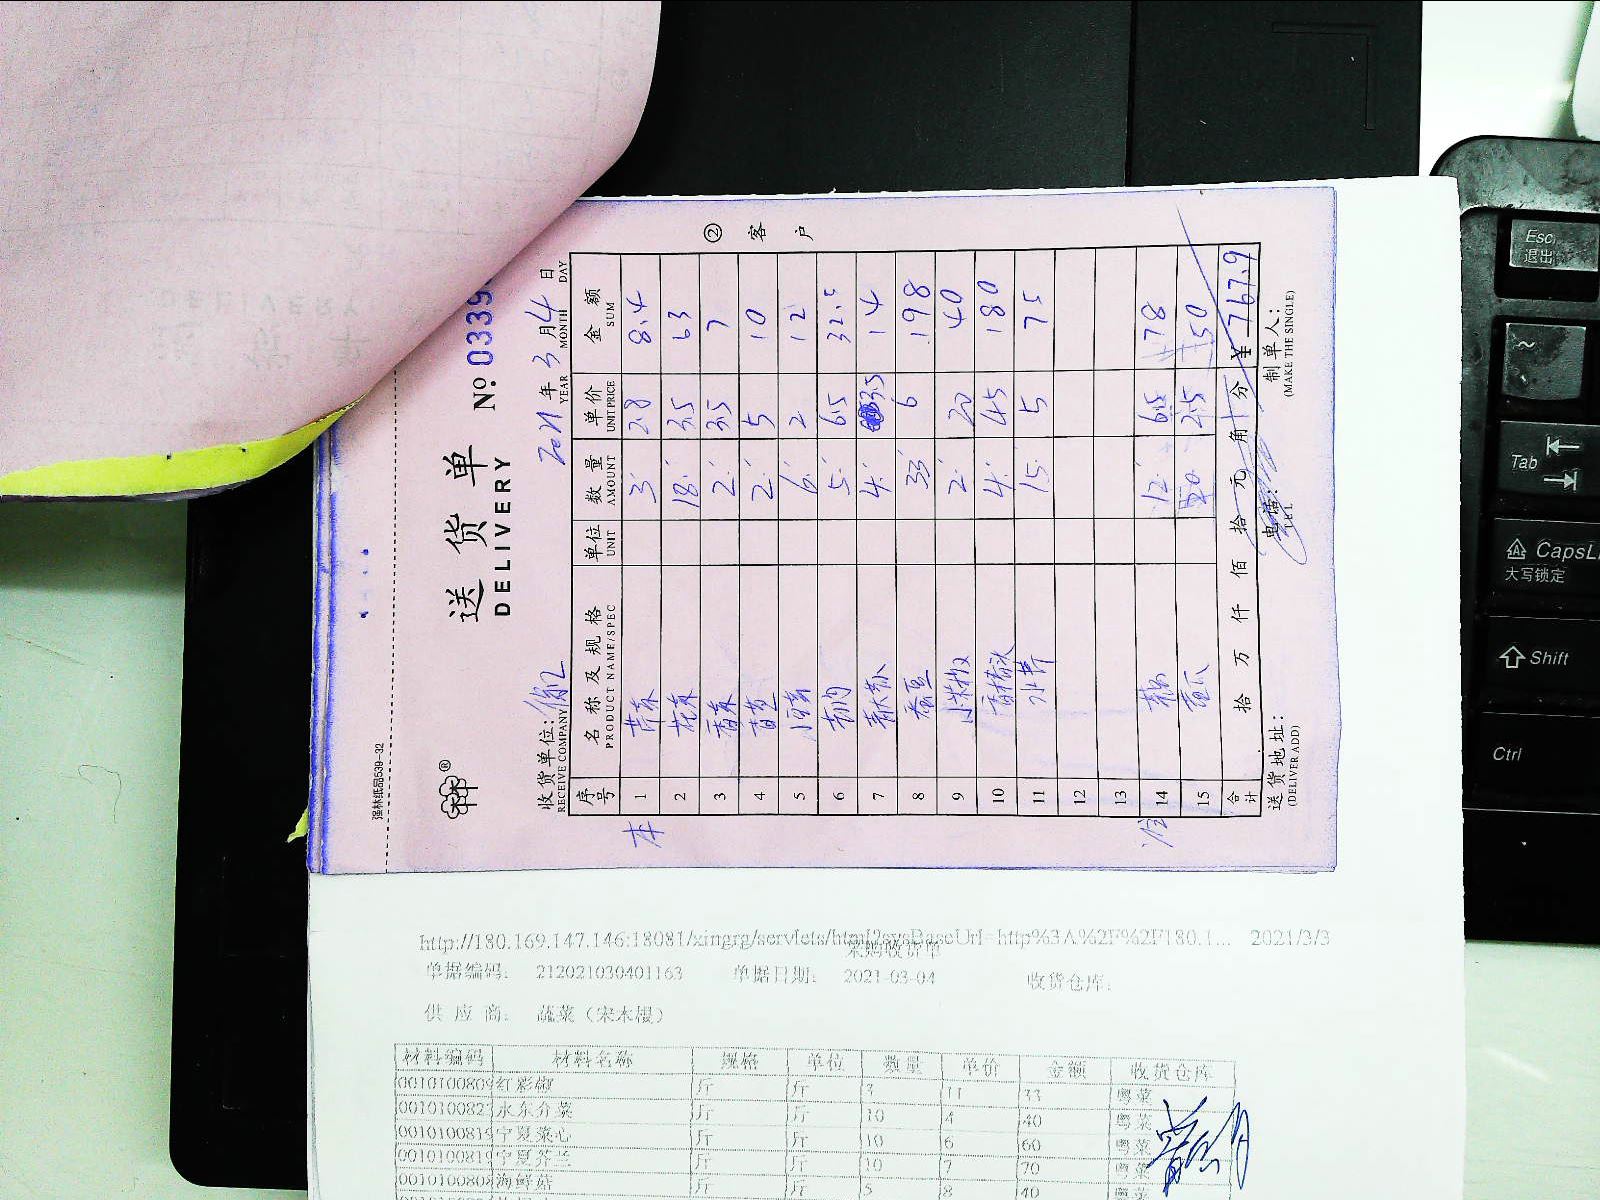 强林纸品539-32
送货单
DELIVERY
No 0339
② 客户
收货单位:
RECEIVE COMPANY
2021年3月4日
YEAR MONTH DAY
序号 名称及规格 单位 数量 单价 金额
PRODUCT NAME/SPEC UNIT AMOUNT UNIT PRICE SUM
1 芹菜 3 2.8 8.4
2 花菜 18 3.5 63
3 香菜 2 3.5 7
4 2 5 10
5 6 2 12
6 5 6.5 32.5
7 4 3.5 14
8 33 6 198
9 小米椒 2 20 40
10 4 45 180
11 水芹 15 5 75
12
13
14 12 6.5 78
15 20 2.5 50
合计 拾 万 仟 佰 拾 元 角 分 ¥ 767.9
送货地址:
(DELIVER ADD)
电话:
TEL
制单人:
(MAKE THE SINGLE)
http://180.169.147.146:18081/xingrg/servlets/html?sysBaseUrl=http%3A%2F%2F180.1... 2021/3/3
采购收货单
单据编码: 212021030401163 单据日期: 2021-03-04 收货仓库:
供应商: 蔬菜（宋本楼）
材料编码 材料名称 规格 单位 数量 单价 金额 收货仓库
0010100809 红彩椒 斤 斤 3 11 33 粤菜
001010082 水东介菜 斤 斤 10 4 40 粤菜
001010081 宁夏菜心 斤 斤 10 6 60 粤菜
001010081 宁夏芥兰 斤 斤 10 7 70 粤菜
001010080 海鲜菇 斤 斤 5 8 40 粤菜
Esc
退出
~
Tab
CapsL
大写锁定
Shift
Ctrl